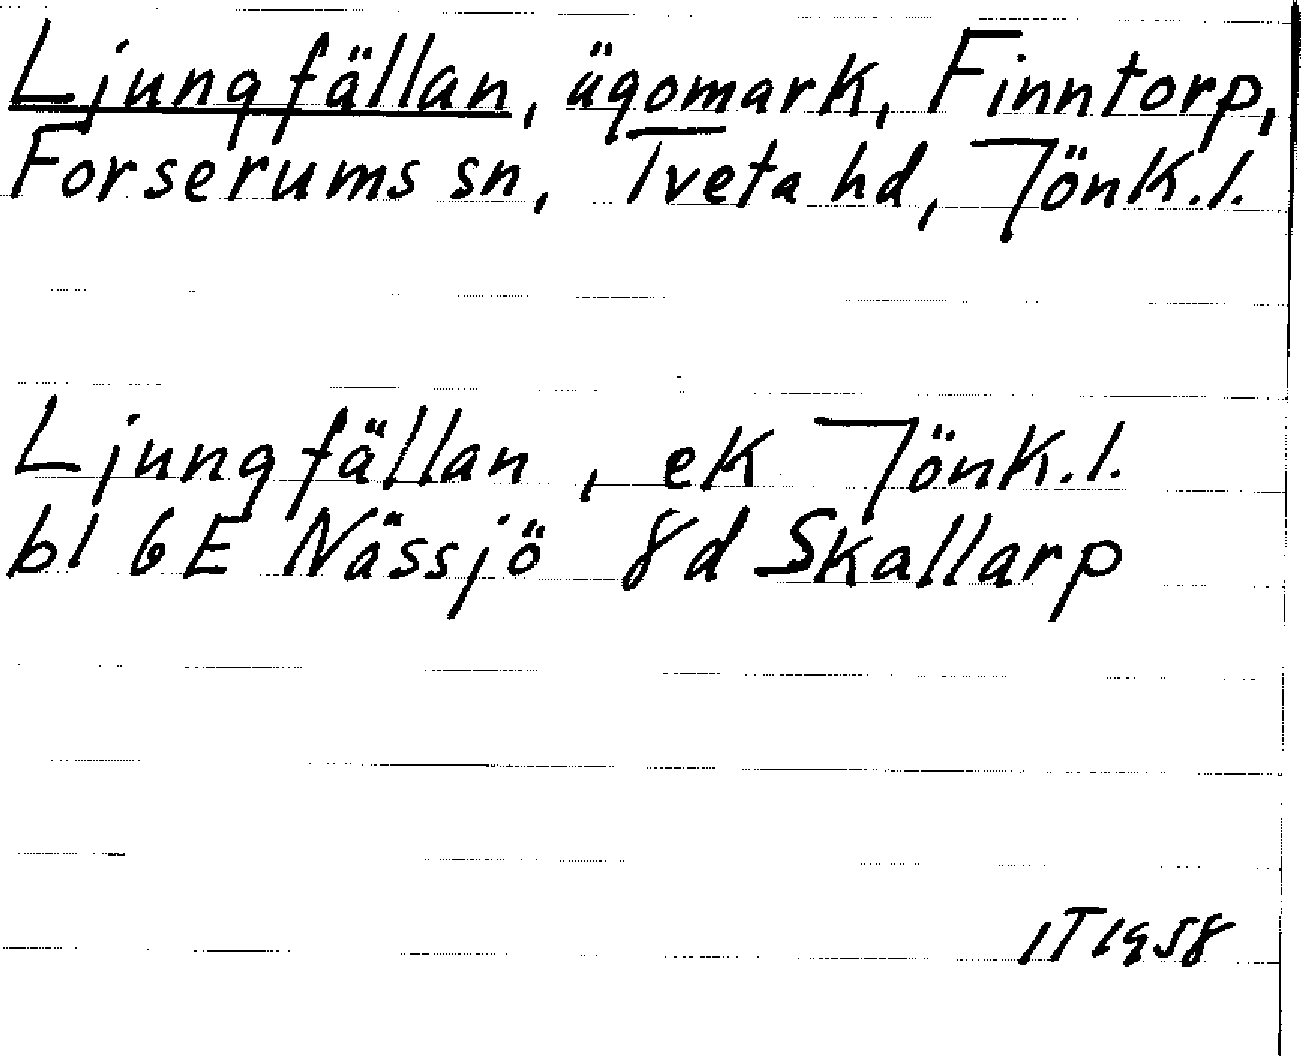 Ljungfällan, ägomark, Finntorp,
Forserums sn, Tveta hd, Jönk.l.
Ljungfällan, ek Jönk.l.
bl 6E Nässjö 8d Skallarp
IT 1958